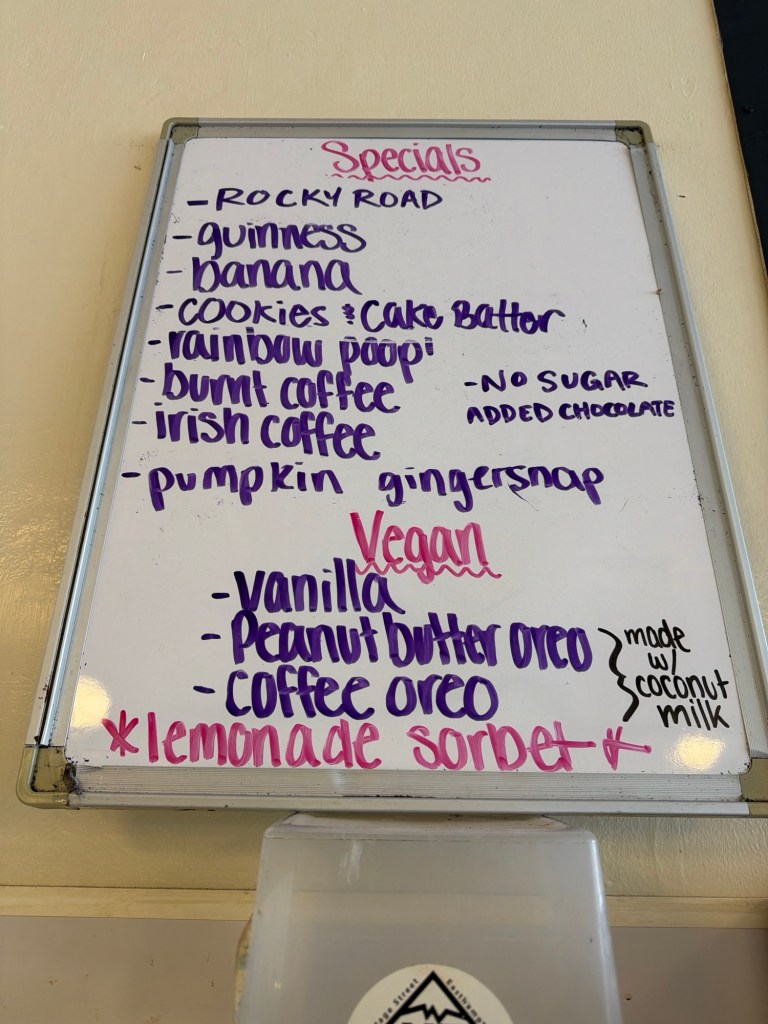 Specials
- ROCKY ROAD
- guinness
- banana
- COOKIES & Cake Batter
- rainbow poop!
- burnt coffee
- NO SUGAR
ADDED CHOCOLATE
- irish coffee
- pumpkin gingersnap
Vegan
- vanilla
- Peanut butter oreo
- coffee oreo
} made
w/
coconut
milk
*lemonade sorbet*